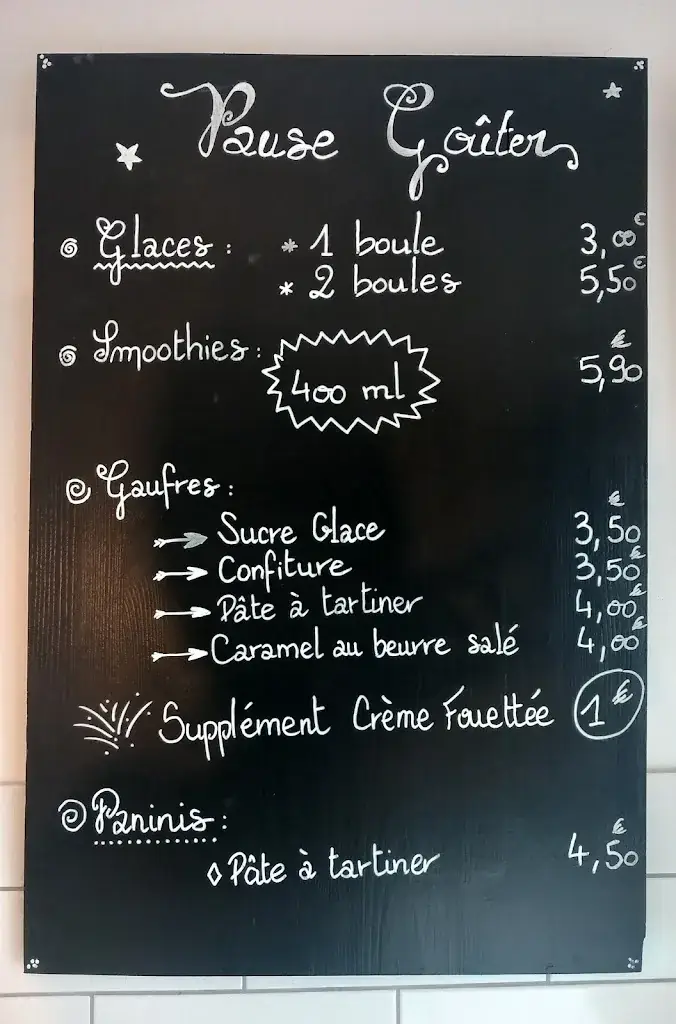 Pause Goûter
Glaces : * 1 boule 3,00€
* 2 boules 5,50€
Smoothies : 400 ml 5,90€
Gaufres :
Sucre Glace 3,50€
Confiture 3,50€
Pâte à tartiner 4,00€
Caramel au beurre salé 4,00€
Supplément Crème Fouettée 1€
Paninis :
Pâte à tartiner 4,50€